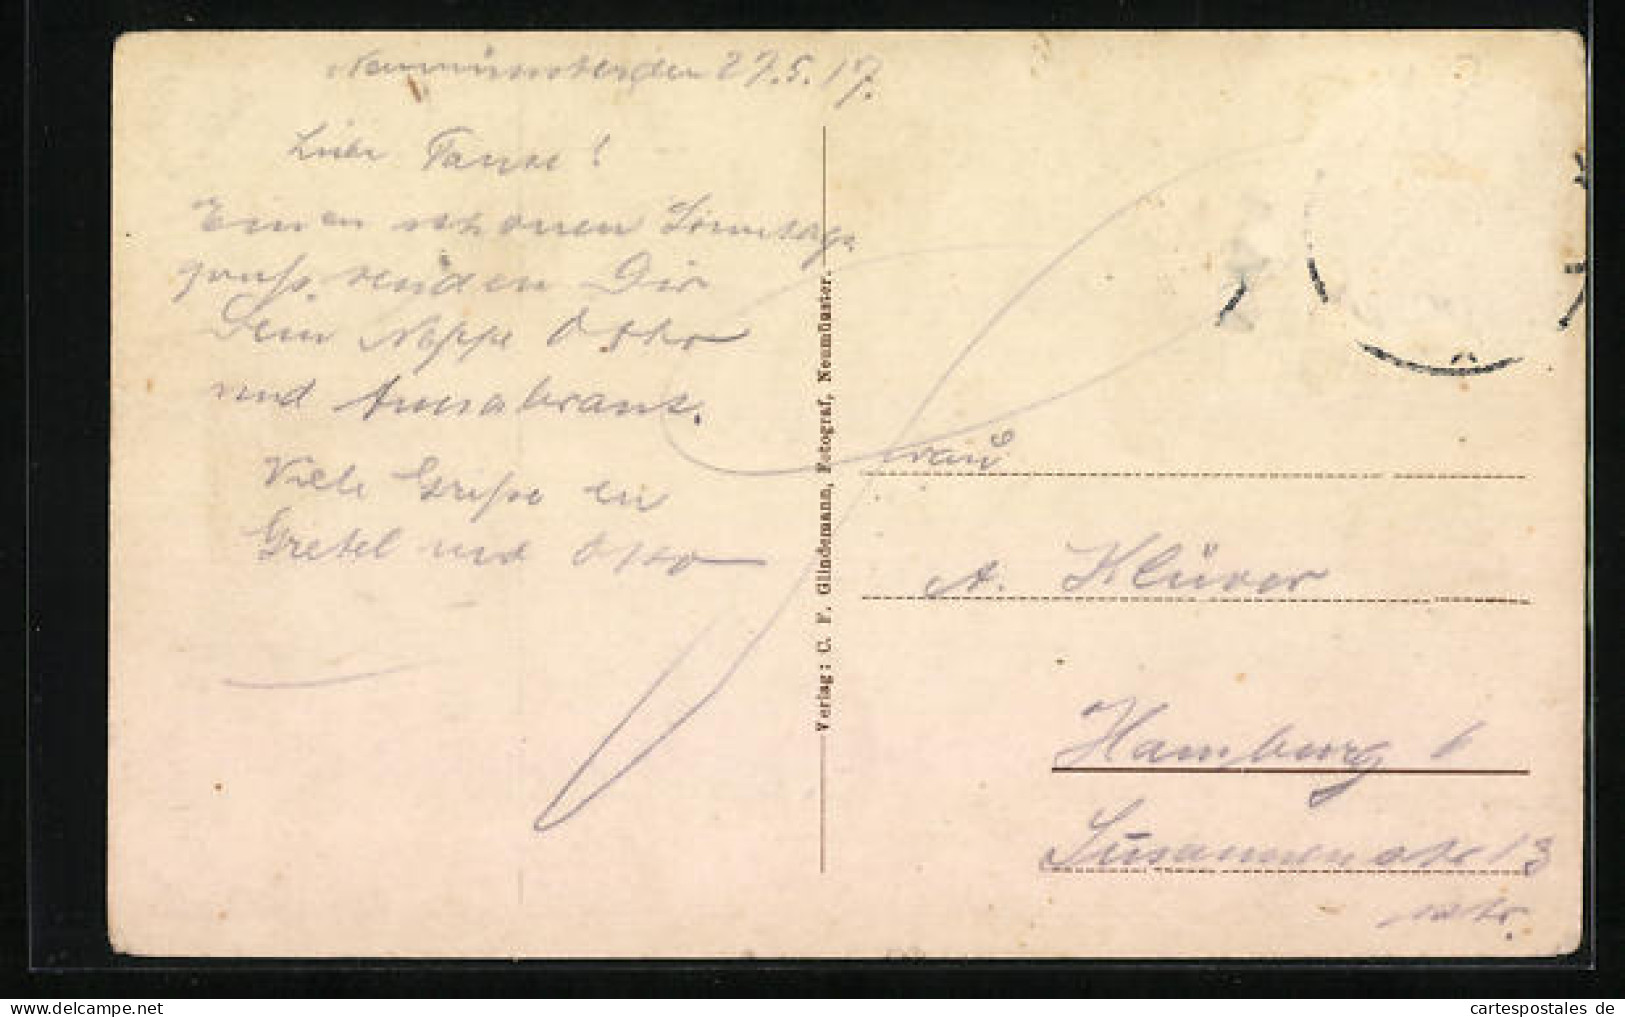 Neumünster den 27.5.17.
Liebe Tante!
Einen schönen Sonntags
gruß senden Dir
Dein Neffe Otto
und
Viele Grüße en
Gretel und Otto
Verlag: C. F. Glindemann, Fotograf, Neumünster.
Frau
A. Klüver
Hamburg 6
Susannenstr 13
cartespostales de